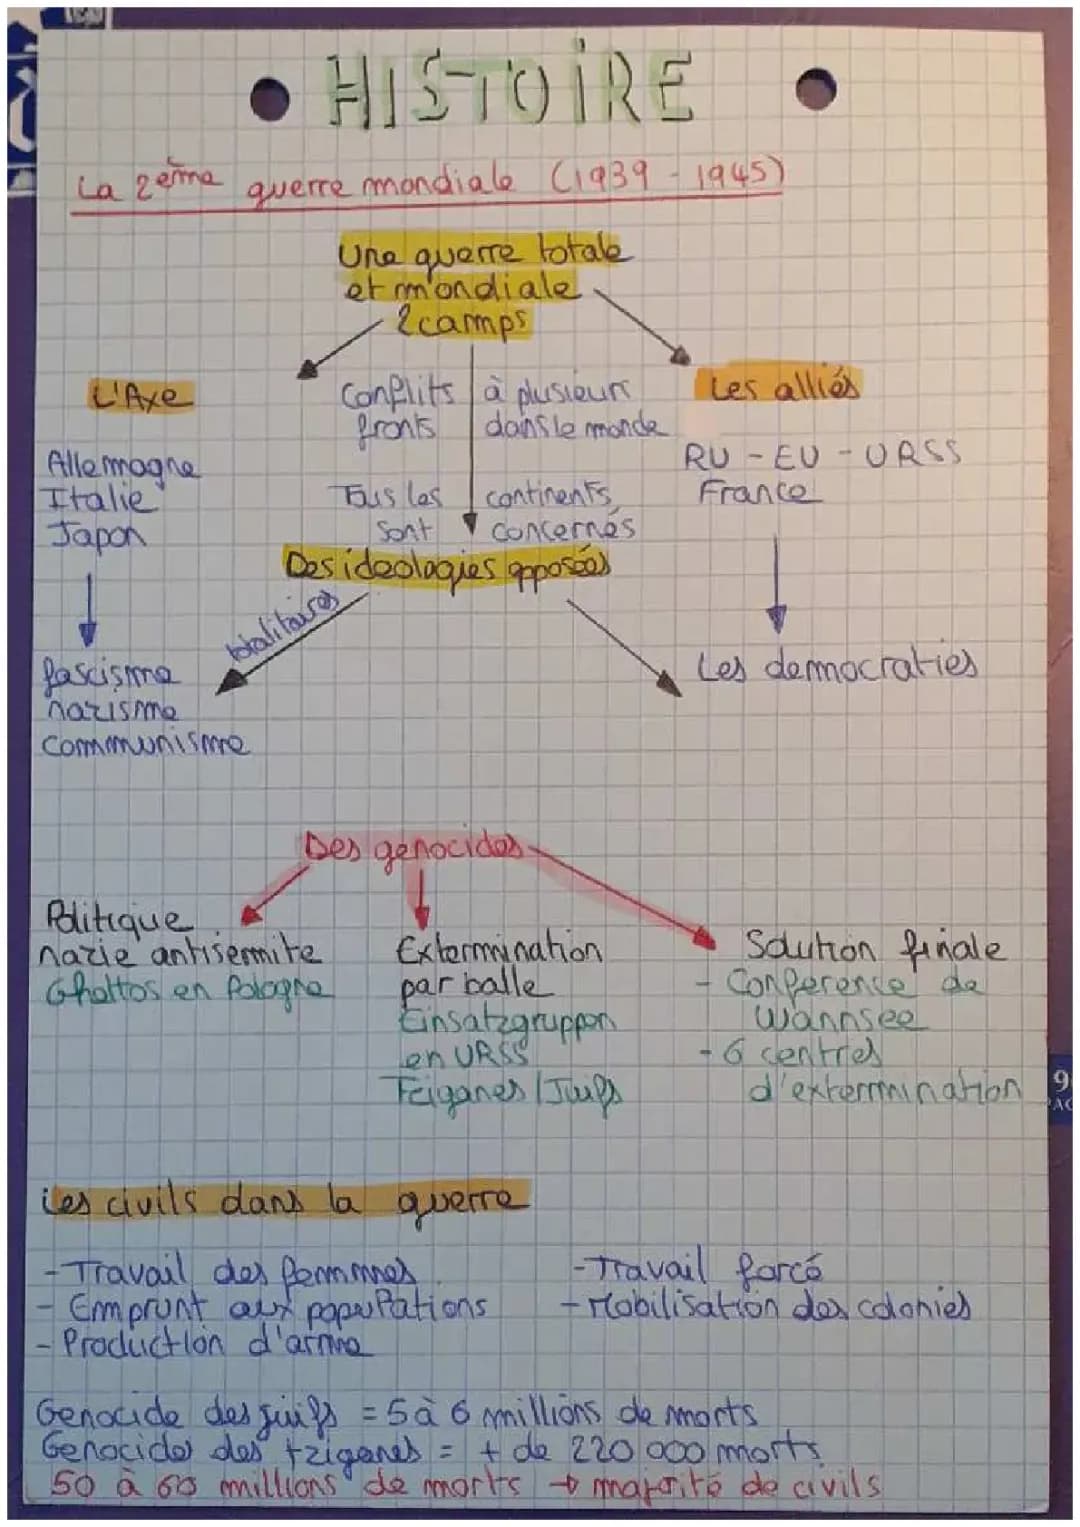 HISTOIRE
La 2ème guerre mondiale (1939 - 1945)
Une guerre totale
et mondiale
2 camps
L'Axe
Conflits à plusieurs
fronts dans le monde
Les alliés
Allemagne
Italie
Japon
RU - EU - URSS
France
Tous les continents
sont concernés
Des ideologies opposées
totalitaires
fascisme
nazisme
communisme
Les democraties
Des génocides
Politique
nazie antisemite
Ghettos en Pologne
Extermination
par balle
Einsatzgruppen
en URSS
Tziganes / Juifs
Solution finale
- Conference de
Wannsee
- 6 centres
d'extermination
Les civils dans la guerre
- Travail des femmes
- Emprunt aux populations
- Production d'arme
- Travail forcé
- Mobilisation des colonies
Genocide des juifs = 5 à 6 millions de morts
Genocides des tziganes = + de 220 000 morts
50 à 60 millions de morts → majorité de civils
9